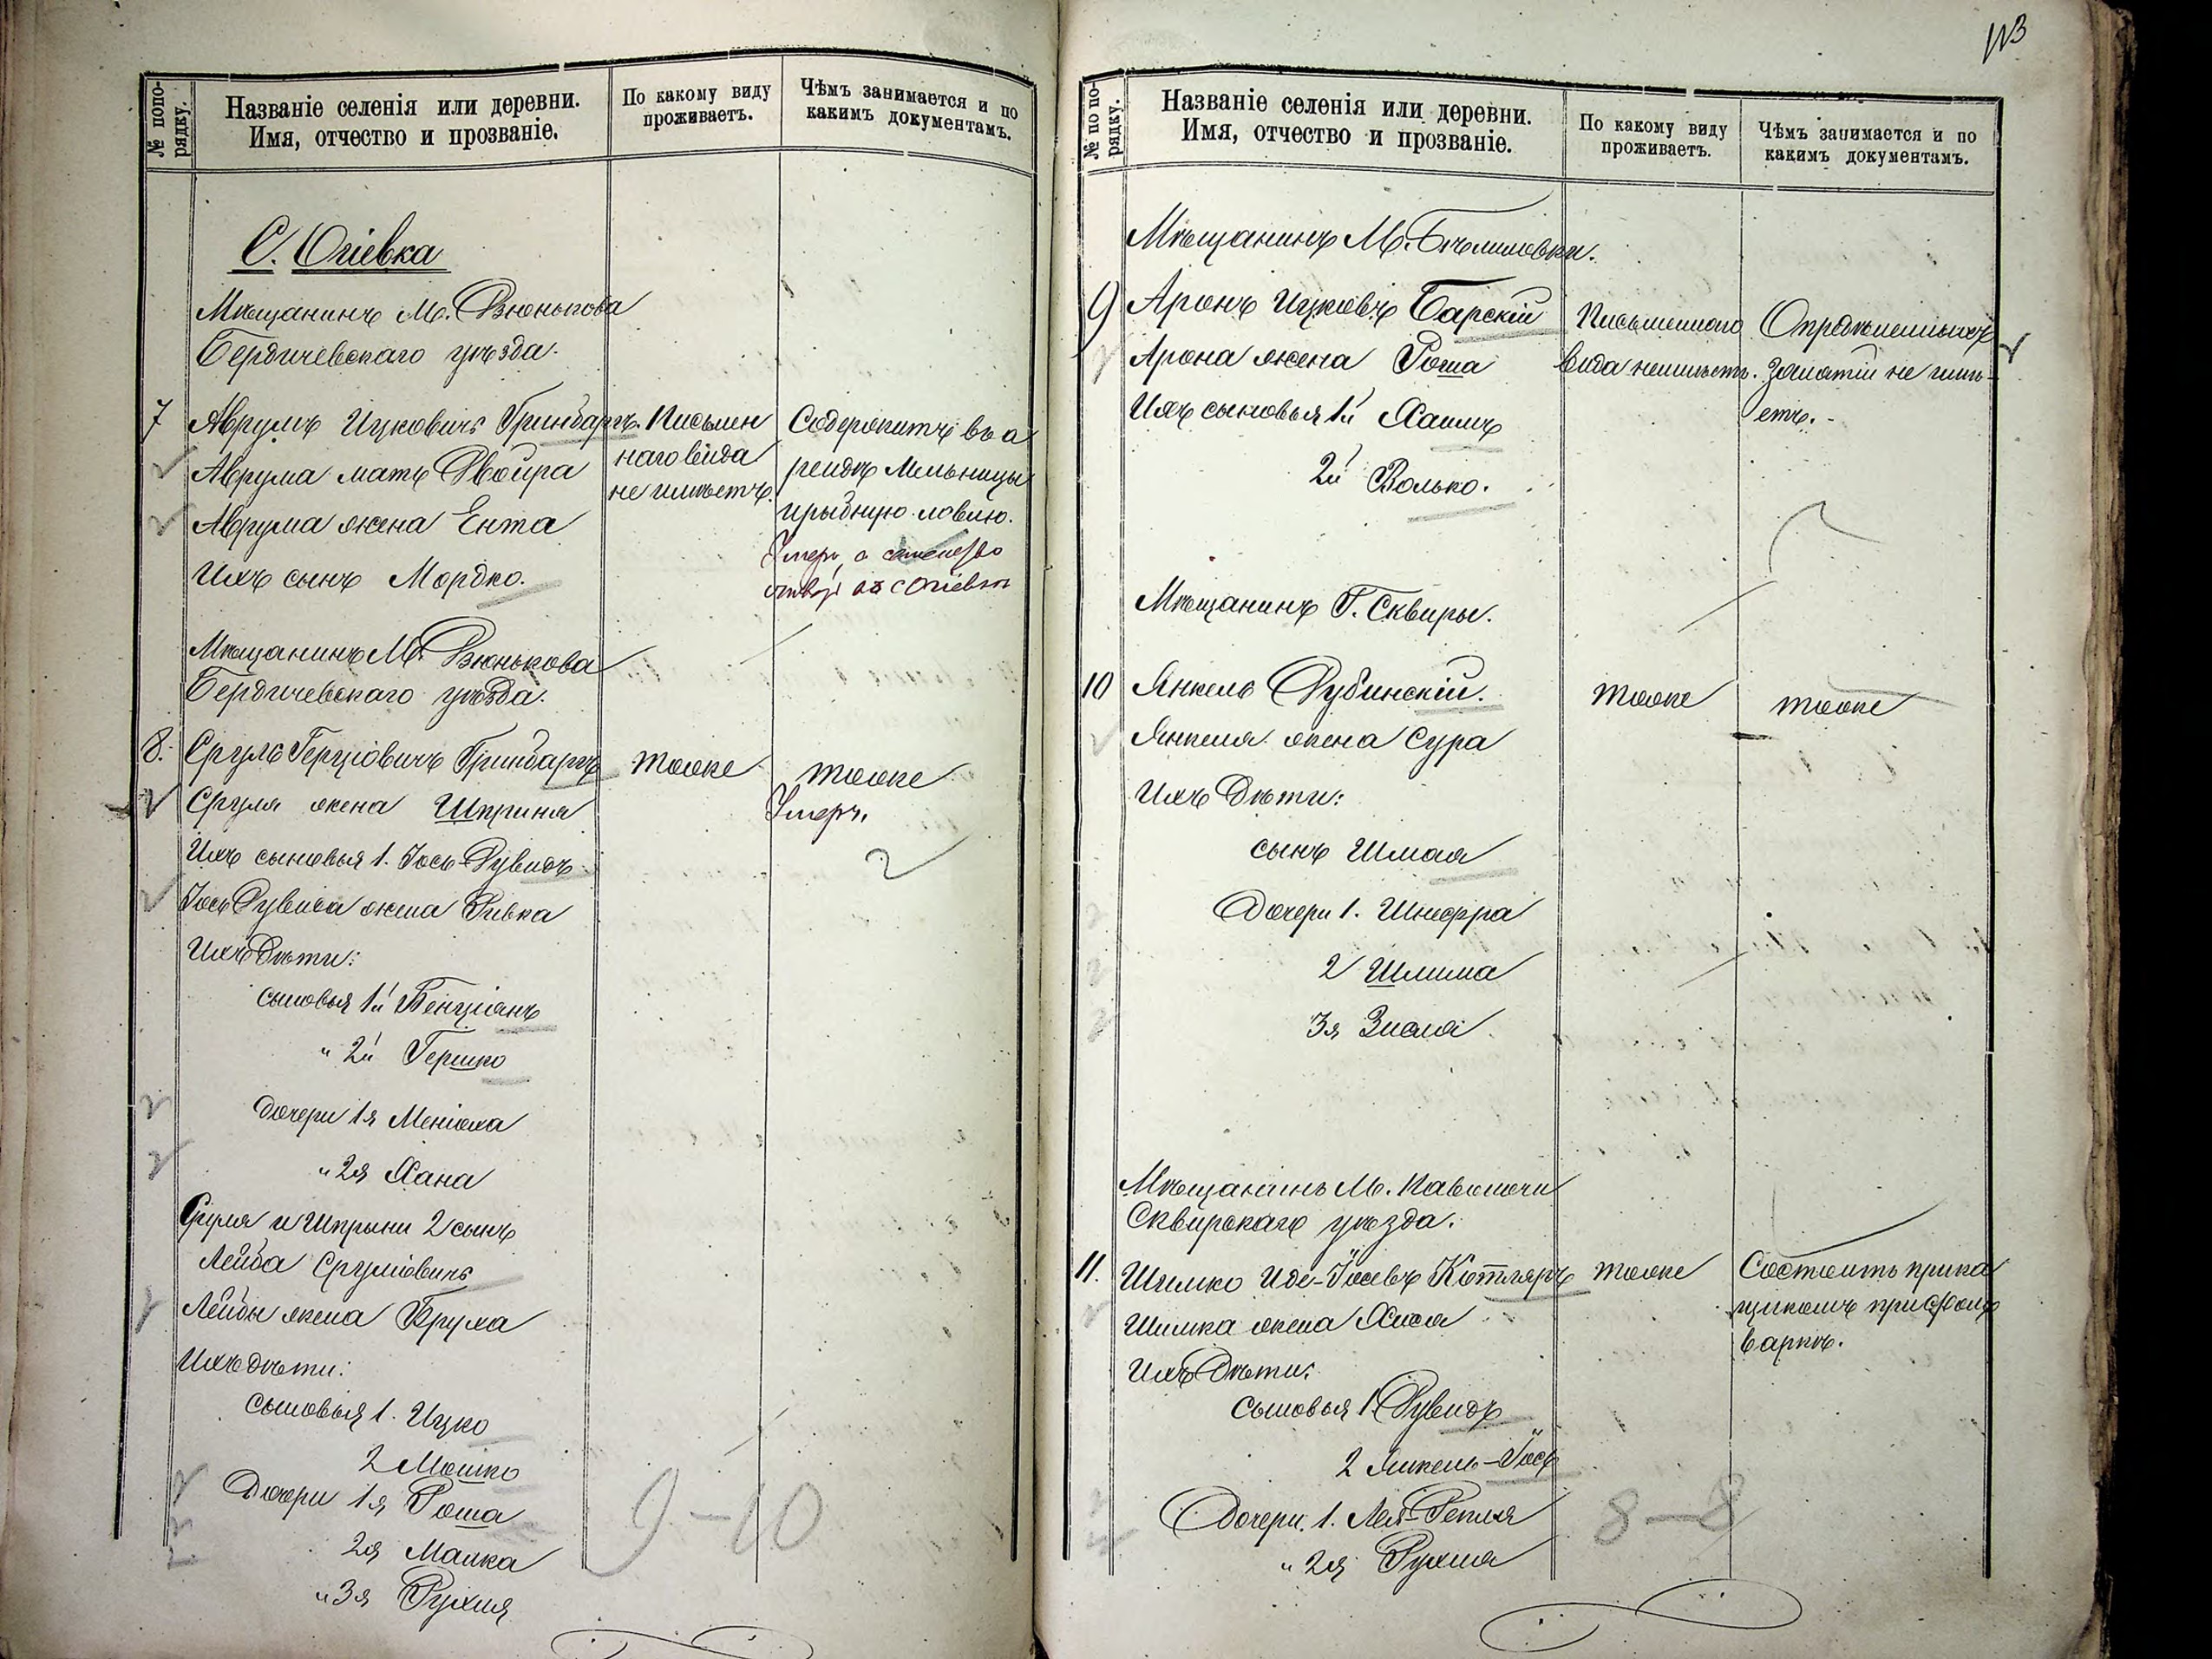 № попо-
рядку.
Названіе селенія или деревни.
Имя, отчество и прозваніе.
По какому виду
проживаетъ.
Чѣмъ занимается и по
какимъ документамъ.
С. Огіевка
Мѣщанинъ М. Вюнькова
Бердичевскаго уѣзда.
7 Аврумъ Ицковичъ Гринбаргъ.
Аврума мать Двойра
Аврума жена Ента
Ихъ сынъ Мордко.
Письмен
наго вида
не имѣетъ.
Содержитъ въ а
рендѣ Мельницы
и рыбную ловлю.
Умеръ, а семейство
Мѣщанинъ М. Вюнькова
Бердичевскаго уѣзда.
8. Сруль Герціовичъ Гринбаргъ
тоже
тоже
Умеръ.
Сруля жена Шприня
Ихъ сыновья 1. Іось-Рувинъ
Іось Рувина жена Ривка
Ихъ дѣти:
сыновья 1й Бенціонъ
" 2й Гершко
дочери 1я
" 2я Хана
Сруля и Шпрыни 2 сынъ
Лейба Сруліовичъ
Лейбы жена Бруха
Ихъ дѣти:
сыновья 1. Ицко
2 Мошко
Дочери 1я Роша
2я Малка
" 3я Рухля
9-10
113
№ по по-
рядку.
Названіе селенія или деревни.
Имя, отчество и прозваніе.
По какому виду
проживаетъ.
Чѣмъ занимается и по
какимъ документамъ.
Мѣщанинъ М. Бѣлиловки.
9 Аронъ Ицковъ Барскій
Арона жена Роша
Ихъ сыновья 1й Хаимъ
2й Волько.
Письменнаго
вида неимѣетъ.
Опредѣленныхъ
занятій не имѣ-
етъ.-
Мѣщанинъ Г. Сквиры.
10 Янкель Рубинскій.
тоже
тоже
Янкеля жена Сура
Ихъ дѣти:
сынъ Шмая
Дочери 1. Шнефра
2 Шлима
3я Зисля
Мѣщанинъ М. Паволочи
Сквирскаго уѣзда.
11. Шимко Иде-Іосевъ Котляръ
тоже
Состоитъ прика
щикомъ
варкѣ.
Шимка жена Хися
Ихъ Дѣти:
Сыновья 1. Рувинъ
2 Янкель-Іось
Дочери. 1. Лея-Рейля
" 2я Рухля
8-8